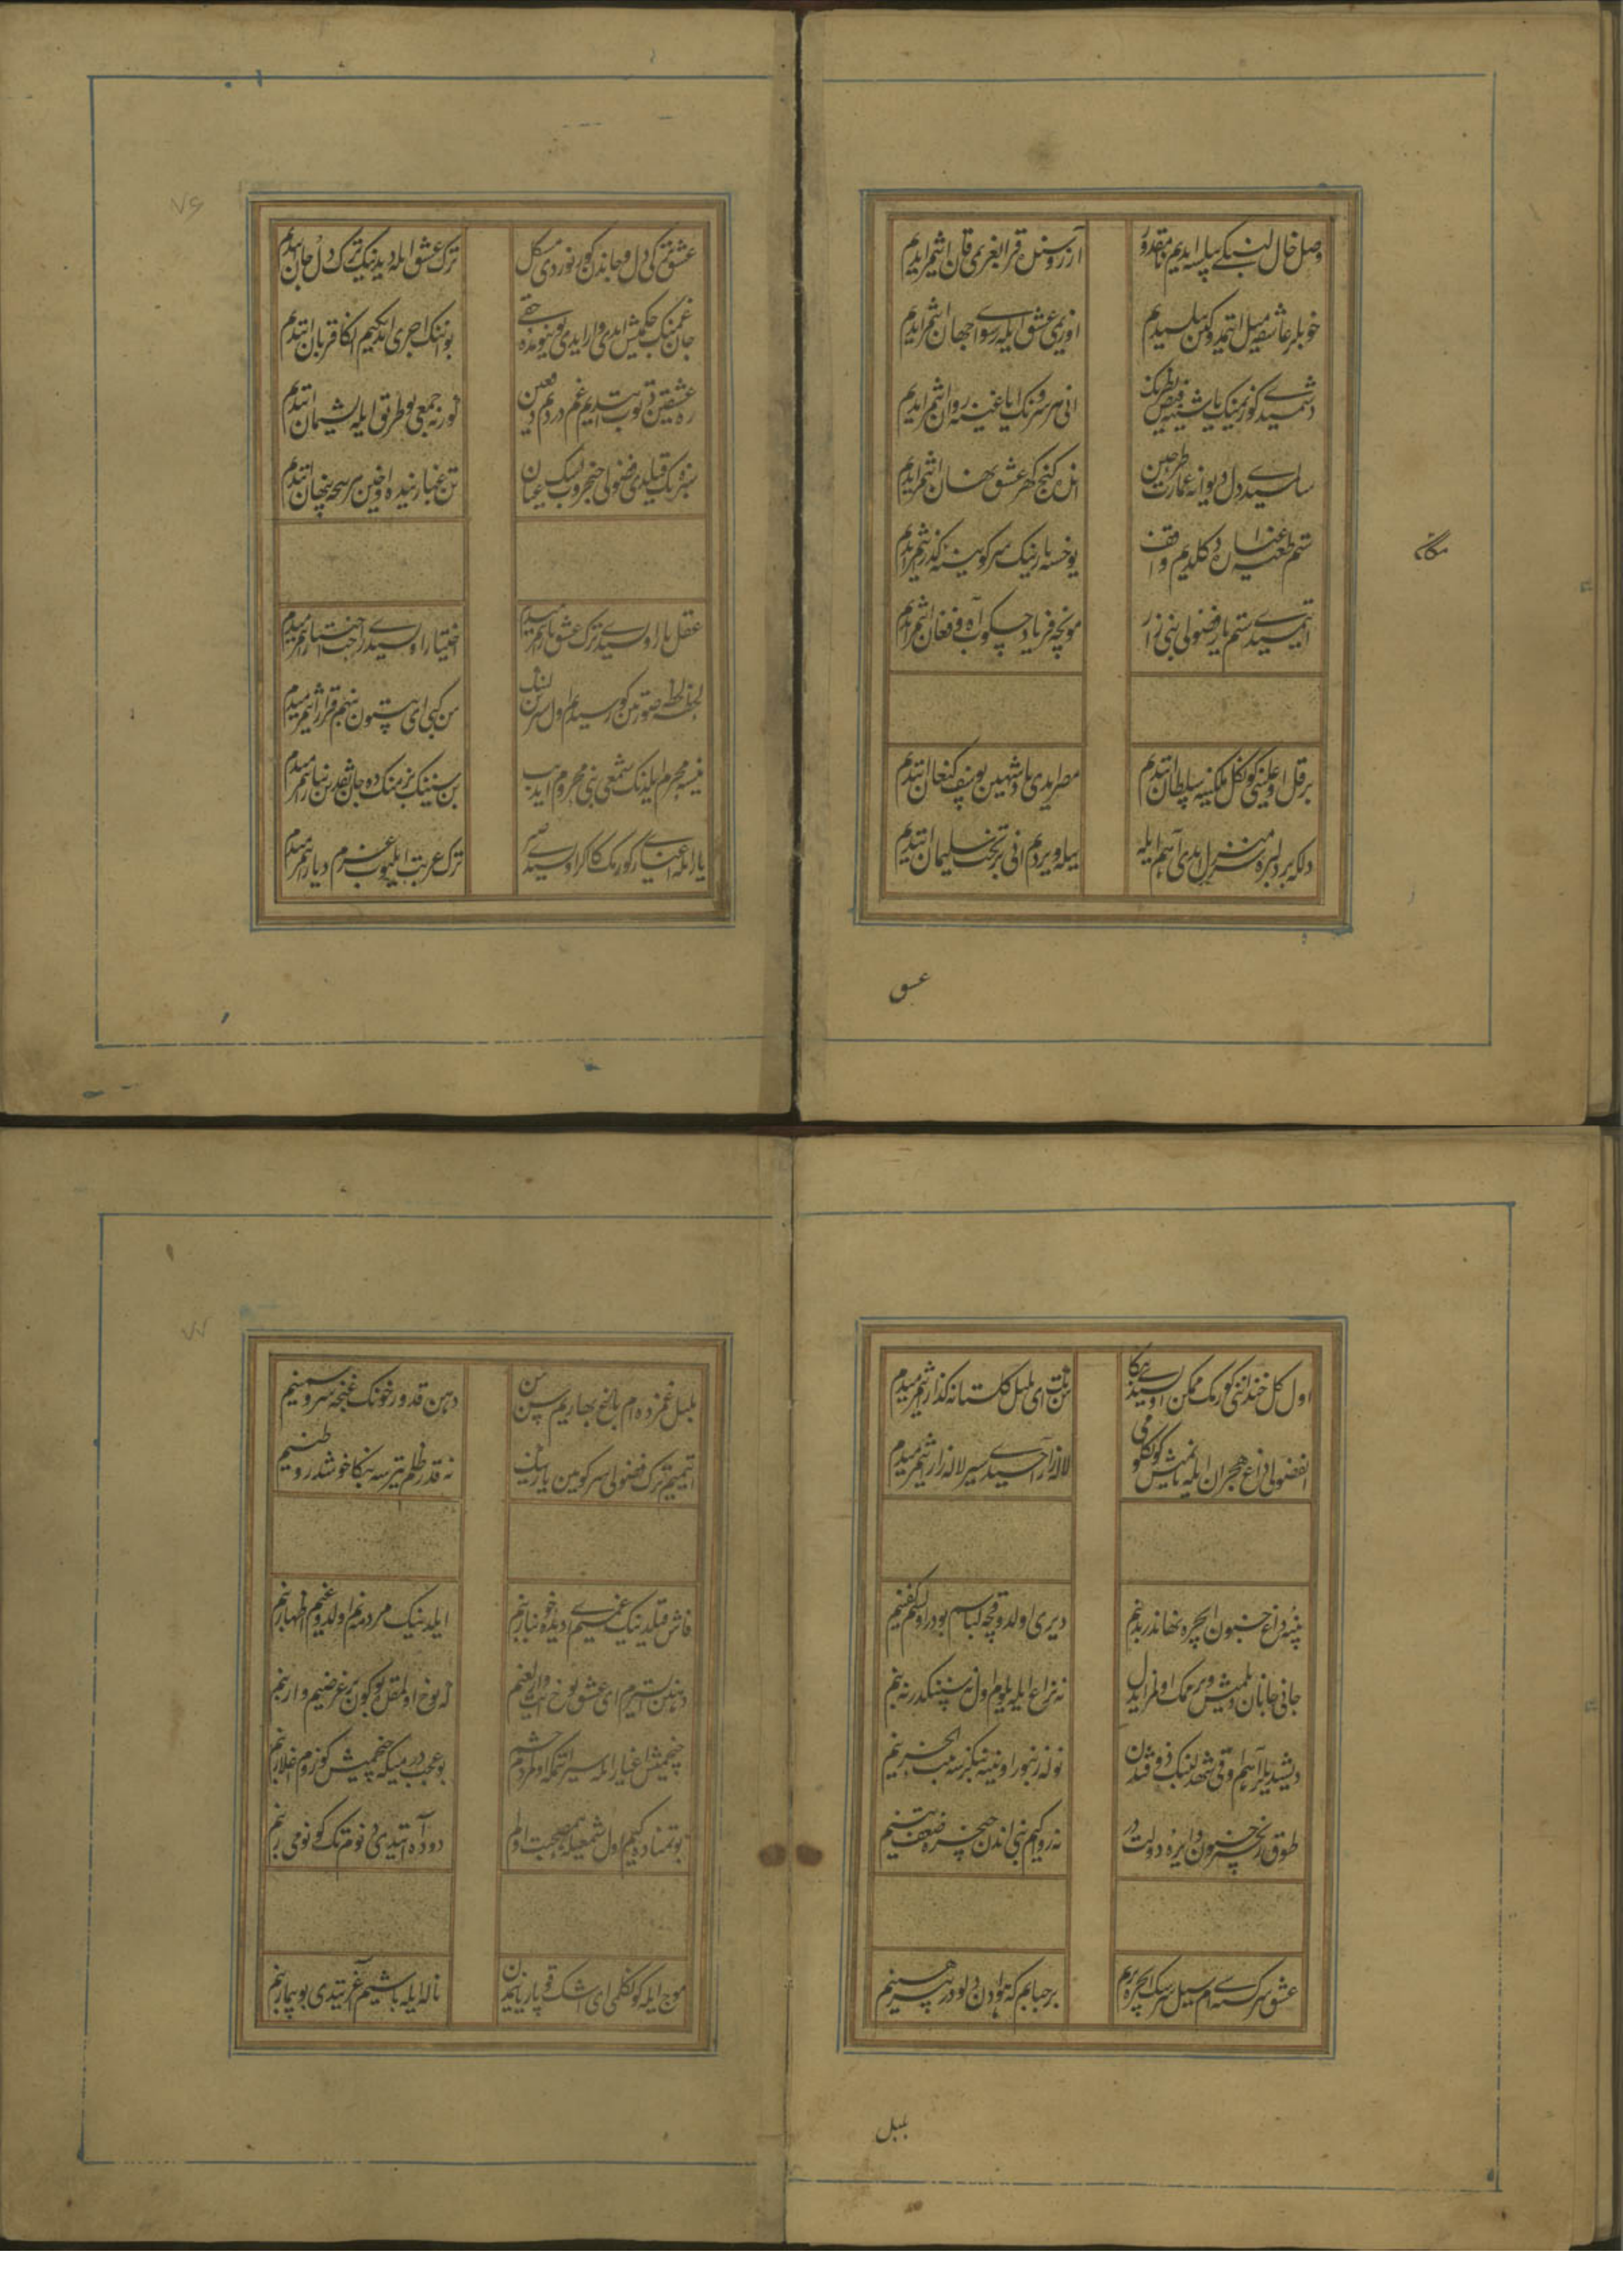 وصل خال لبنکی بیلسه ایدیم نامقدور آرزوسندن قرا بغریمی قان اتمزیدیم
خوبلر عاشقه میل اتمدوکین بیلسیدیم اوزیمی عشق ایله رسوای جهان اتمزایدیم
دشمیسیدی کوزیمنک یاشینه فیض نظرنک انی هر سروننک ایاغینه روان اتمزایدیم
سالمسیدی دل دیوانه عمارت طرحین انده کنج کهر عشق نهان اتمزایدیم
ستم طعنه اغیاردن اولسیدم واقف یوخسه یارینک سرکوینه کذر اتمزایدیم
ایتمسیدی ستم یار فضولی بنی زار مونجه فریاد چکوب آه و فغان اتمزایدیم
مکا
برقل اوغلینی کونکل ملکینه سلطان اتدیم مصر ایدی پادشهین یوسف کنعان اتدیم
دلکه بر دلبره منزل ایدی آهم ایله ییله ویردم انی بر تخت سلیمان اتدیم
عشق
عشق ترکی دل و جاندن کورنوردی مشکل ترک عشق ایله دیدینک ترک دل و جان اتدیم
جان غمنک چکمش ایدی وار ایدی بوینومده حقی بو اننک اجری ایدیکیم انکا قربان اتدیم
ره عشقین توب ایتدیم غم و دردم دفعین
سینه ک قیلدی فضولی خنجر وب اشک عیان تن غبارینده اوخین هر سجه پنهان اتدیم
عقل یار اولسیدی ترک عشق یار اتمزمیدم اختیار اولسیدی راحت اختیار اتمزمیدم
لحظه لحظه صورتین کورسیدم اول شیرین لبنک سن کبی ای بیستون منهم قرار اتمزمیدم
نیسه محرم ایلدنک شمعی بنی محروم ایدیب بن سنینک بزمنک ده جان نقدین نثار اتمزمیدم
یار ایله اغیاری کورمک کاکر اولسیدی صبر ترک غربت ایلیوب عزم دیار اتمزمیدم
اول کل خندانی کورمک ممکن اولسیدی بنکا سن تک ای بلبل کلستانه کذار اتمزمیدم
ای فضولی داغ هجران ایله یانمیش کونکلومی لاله زار آچسیدی سیر لاله زار اتمزمیدم
پنبه داغ جنون ایچره نهاندر بدنیم دیری اولدوقجه لباسیم بودر اولسم کفنیم
جانی جانان دیلمیش ویرمه مک اولمز ای دل نه نزاع ایله یلوم اول نه سنینکدر نه بنیم
دیشدیلر آهیم اوقی شهد لبنک ذوقیندن نوله زنبور اوینه بنکزسه بیت الحزنیم
طوق زنجیر جنون دایره دولتدر نه روا کیم بنی اندن چیخره ضعف تنیم
عشق سرکشته سیم سیل سرشک ایچره یریم بر حبابم که هوادن دولودر پیرهنیم
بلبل
بلبل غمزده ام باغ بهاریم سن سن دهن قد و رخونک غنچه سرو و سمنیم
ایتمیم ترک فضولی سر کویین یارینک نه قدر ظلم یترسه بنکا خوشدر وطنیم
فاش قیلدینک غمیمی ای دیده خونبار بنیم ایلدینک مردمه نم اولدوغیم اظهار بنیم
دهنین ایسترم ای عشق یوخ ایت وارلغیم که یوخ اولمقلق بو کون بر غرضیم وار بنیم
چخمیش اغیار ایله سیر اتمکه اول مردم چشم بو عجب درمیکه چخمیش کوزوم اغلار بنیم
بو تمناده کیم اول شمع ایله همصحبت اولم دوده آه اتدی دونوم تک کونومی زار بنیم
موج ایله کونکلمی ای اشک قوپار یانمدن ناله ایله باشیم آغریتدی بو بیمار بنیم